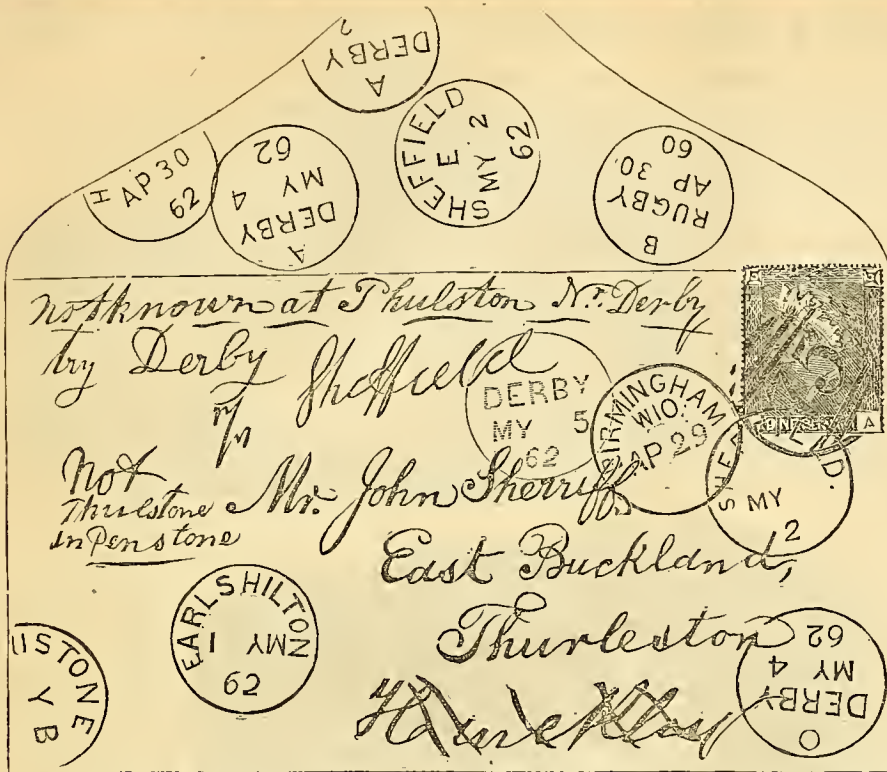 A
DERBY
2
H
AP 30
62
A
DERBY
MY 4
62
SHEFFIELD
E
MY 2
62
B
RUGBY
AP 30
60
not known at Thulston Nr. Derby
try Derby
Sheffield
DERBY
MY 5
62
BIRMINGHAM
W10
AP 29
MY
2
A
Not
Thulstone
in Penstone
Mr. John Sherriff,
East Buckland,
Thurleston
EARLSHILTON
1 MY
62
ISTONE
Y B
O
DERBY
MY 4
62